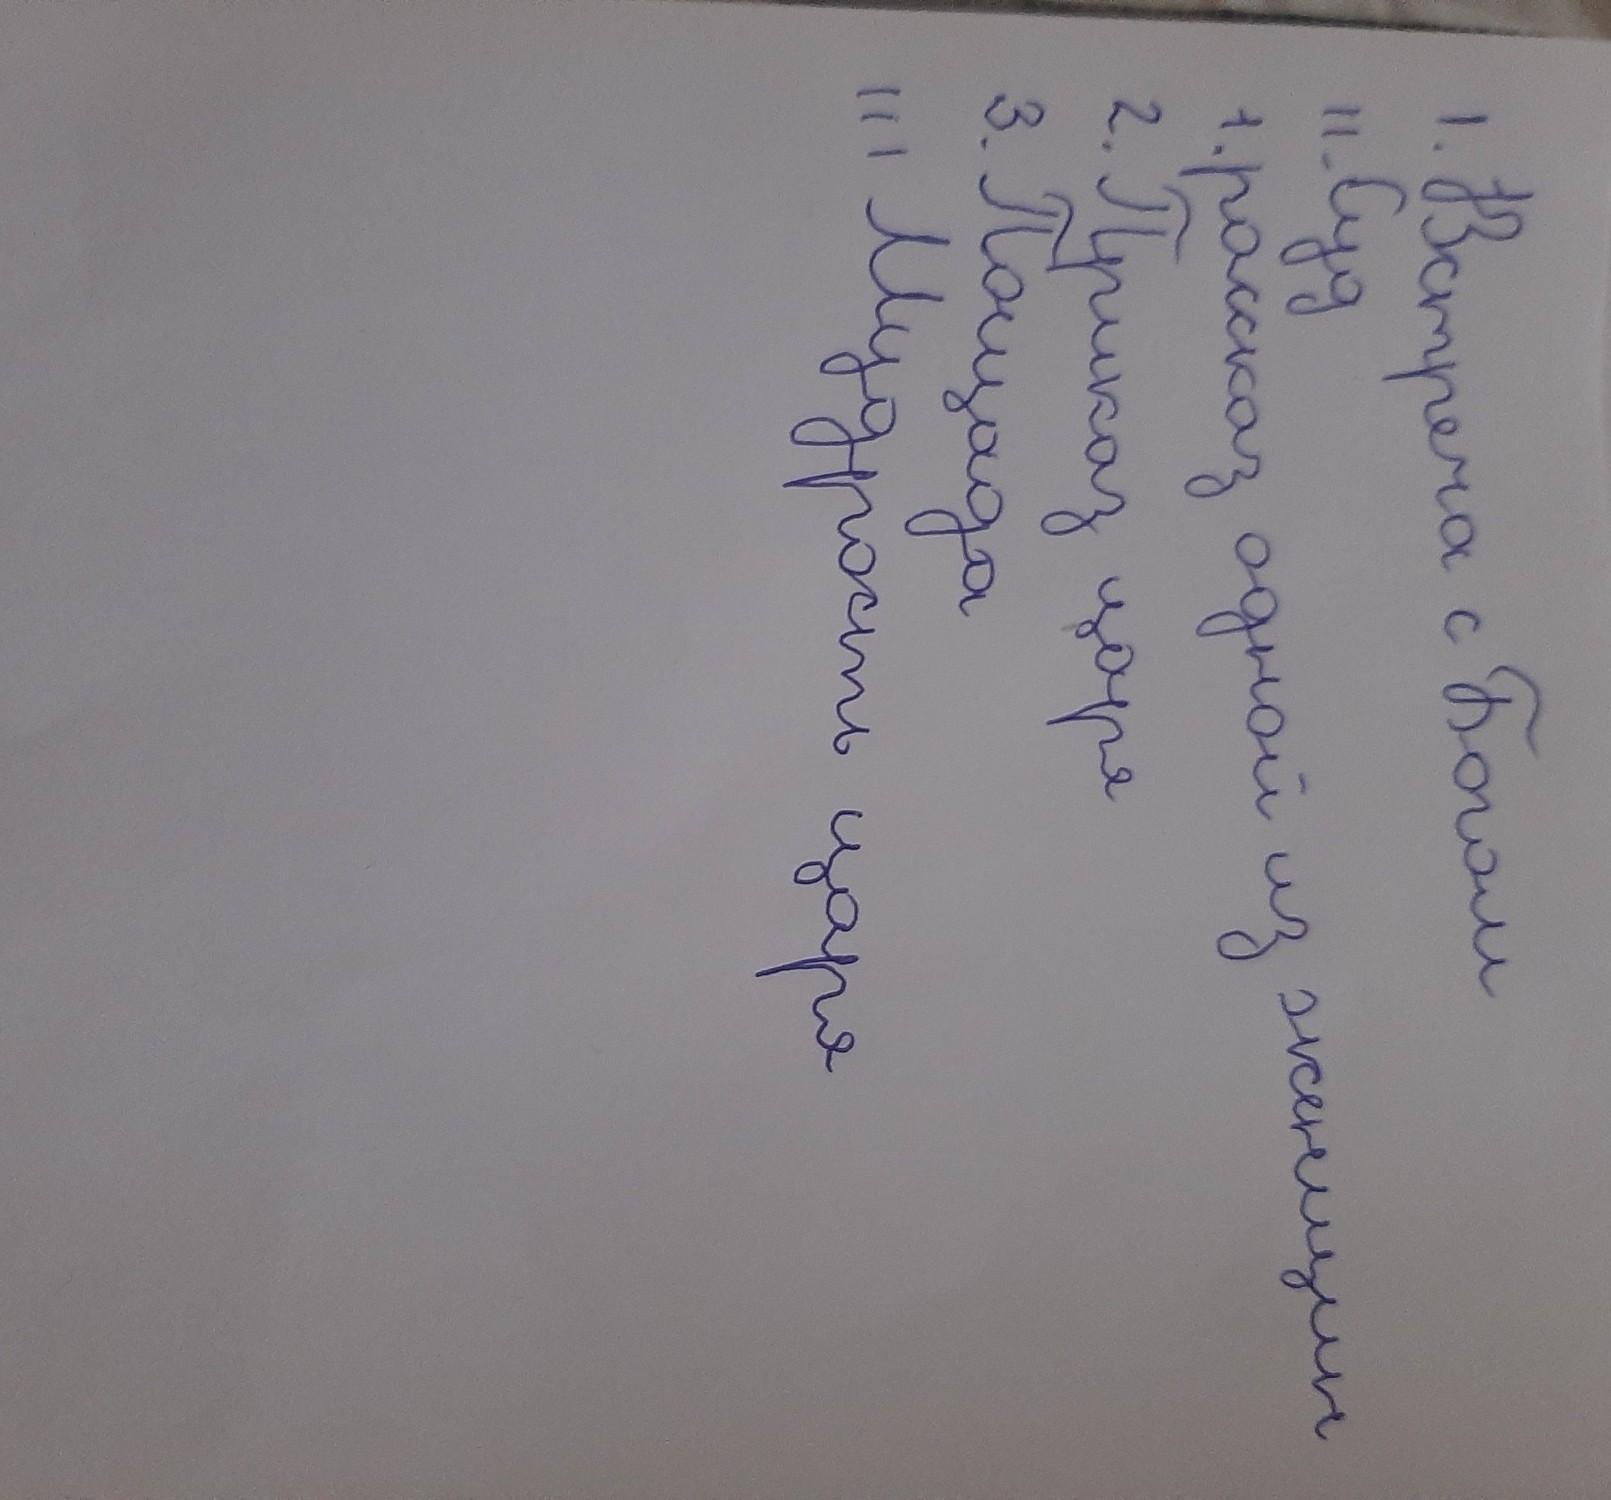 I. Встреча с Богом
II. Суд
1. расказ одной из женщин
2. Приказ царя
3. Пощада
III Мудрость царя